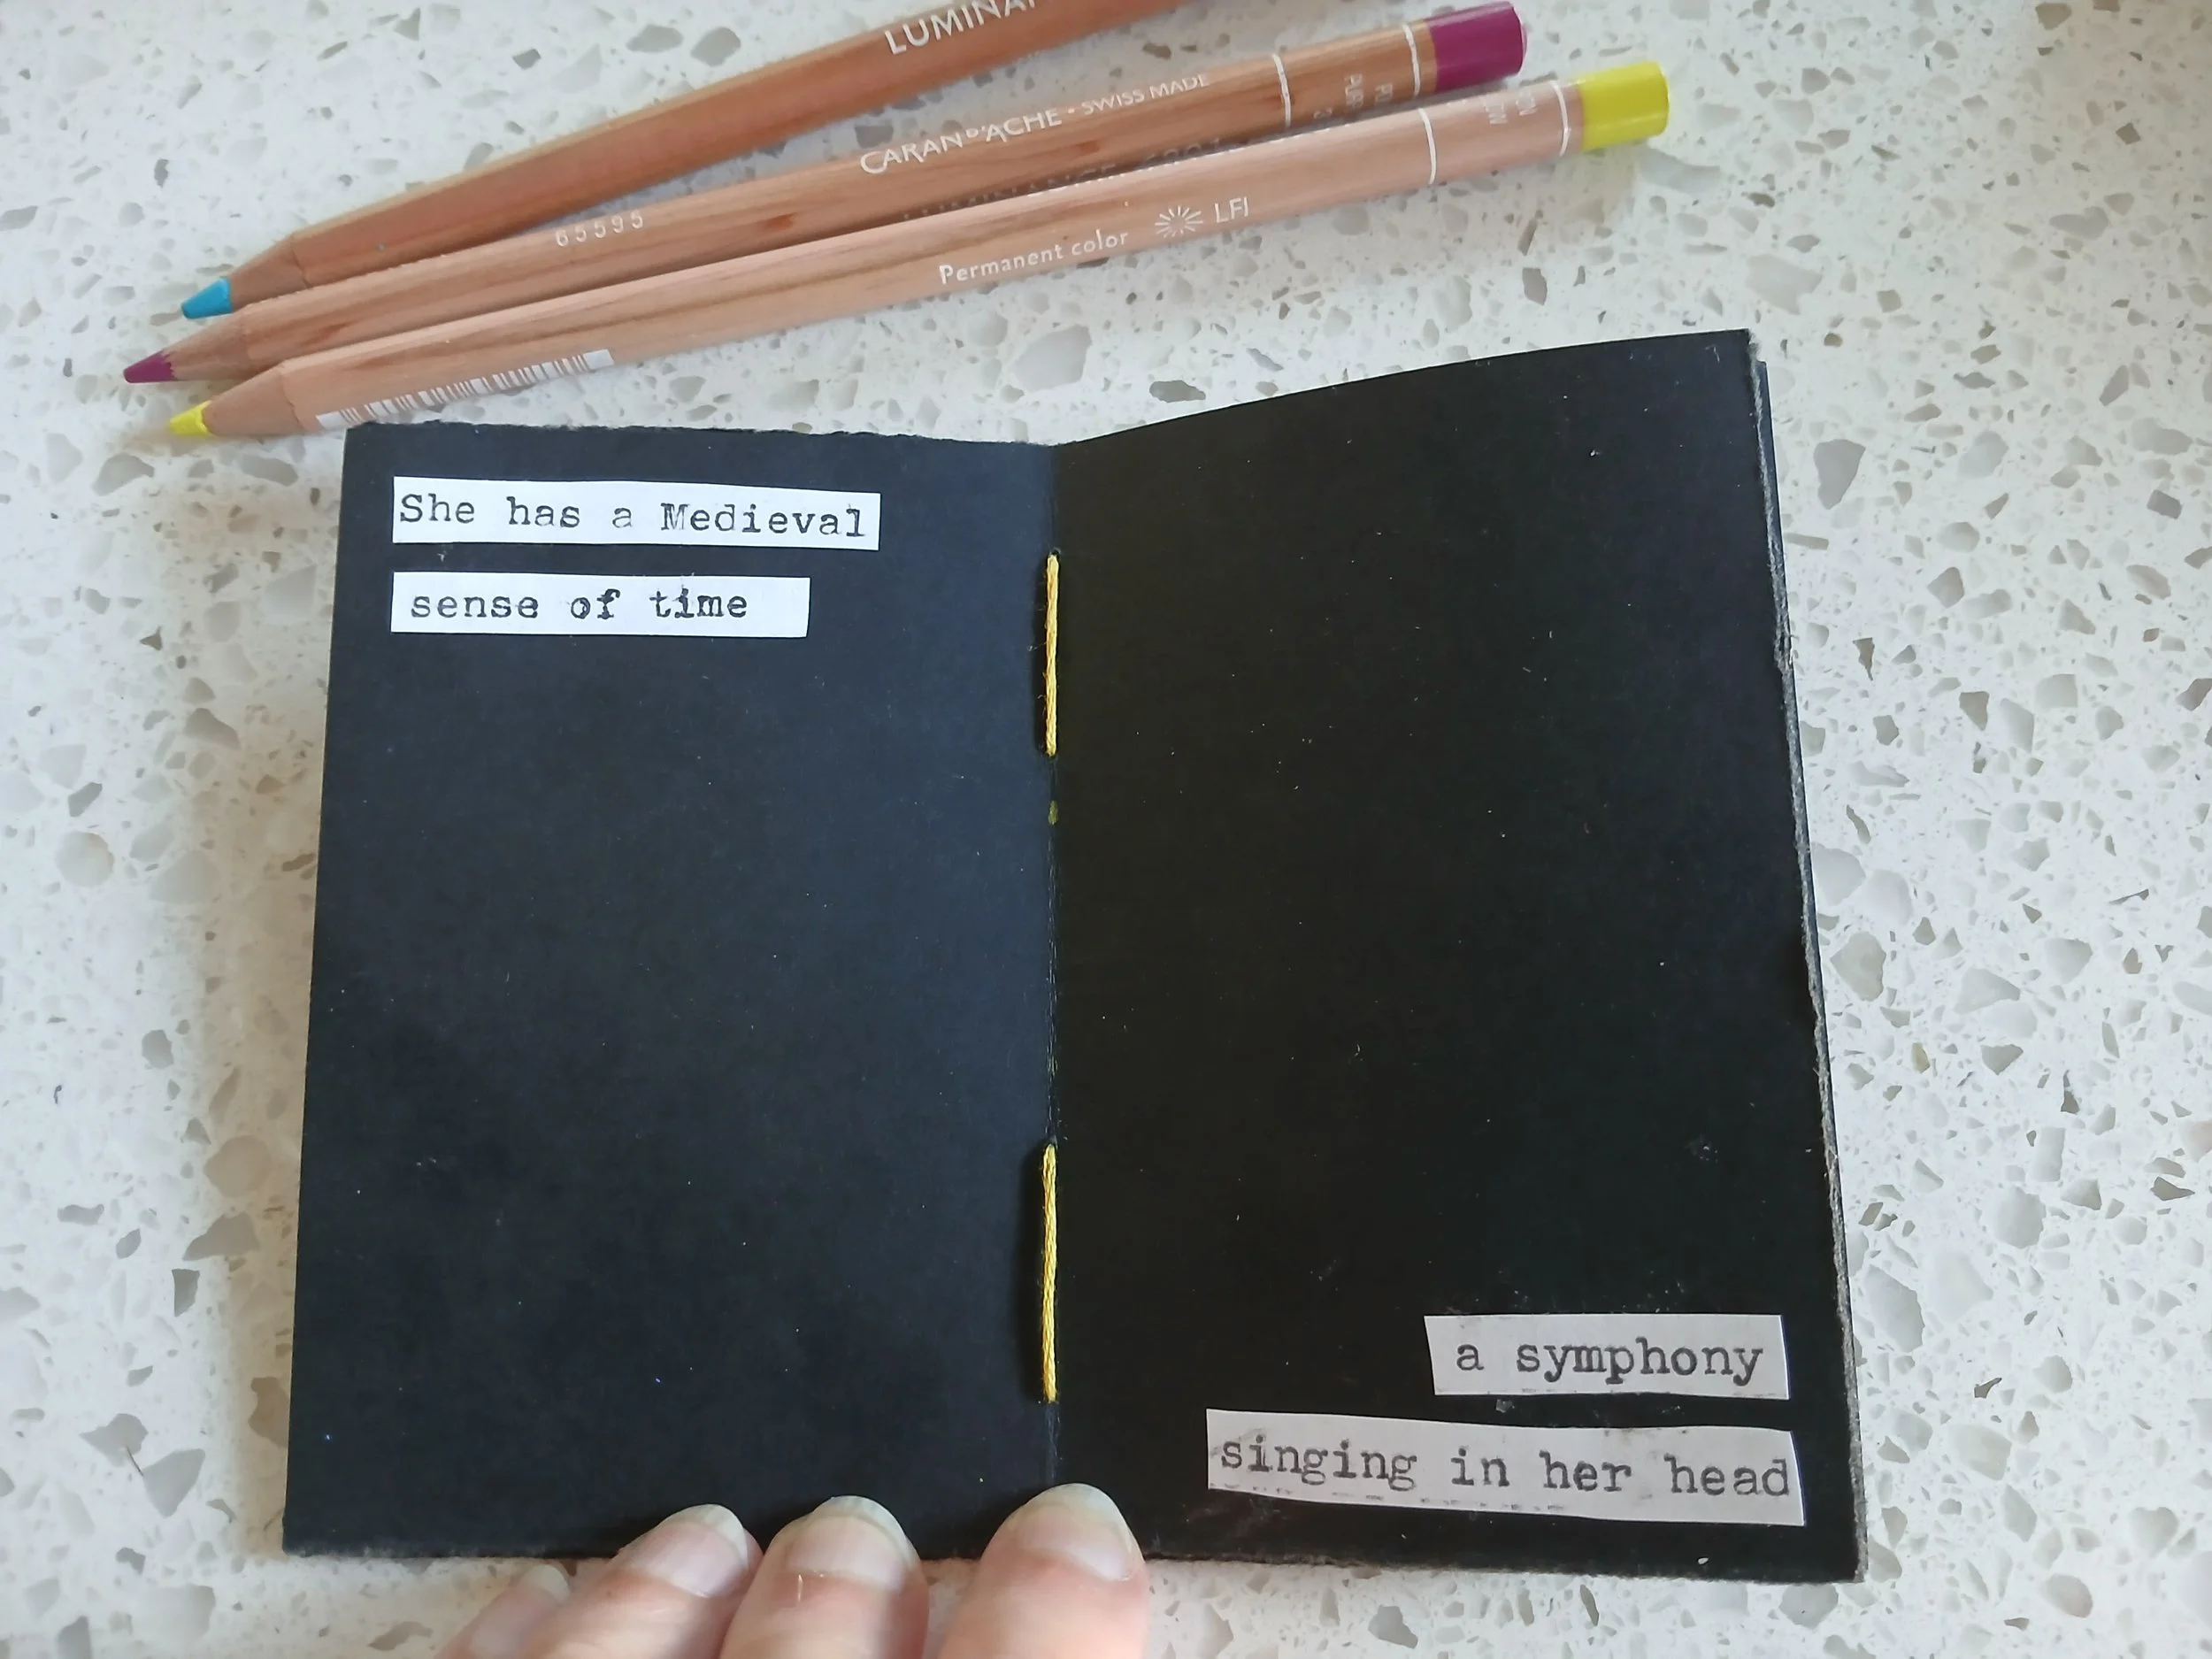 LUMINA
CARAN D'ACHE • SWISS MADE
65595
Permanent color LFI
She has a Medieval
sense of time
a symphony
singing in her head